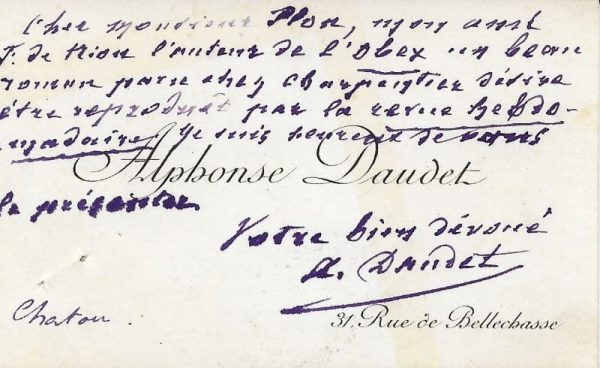 Cher Monsieur Plon, mon ami
F. de Nion l'auteur de l'Obex un beau
roman paru chez Charpentier désire
être reproduit par la revue hebdo-
madaire, je suis heureux de vous
Alphonse Daudet
le présenter
Votre bien dévoué
A. Daudet
Chatou.
31, Rue de Bellechasse